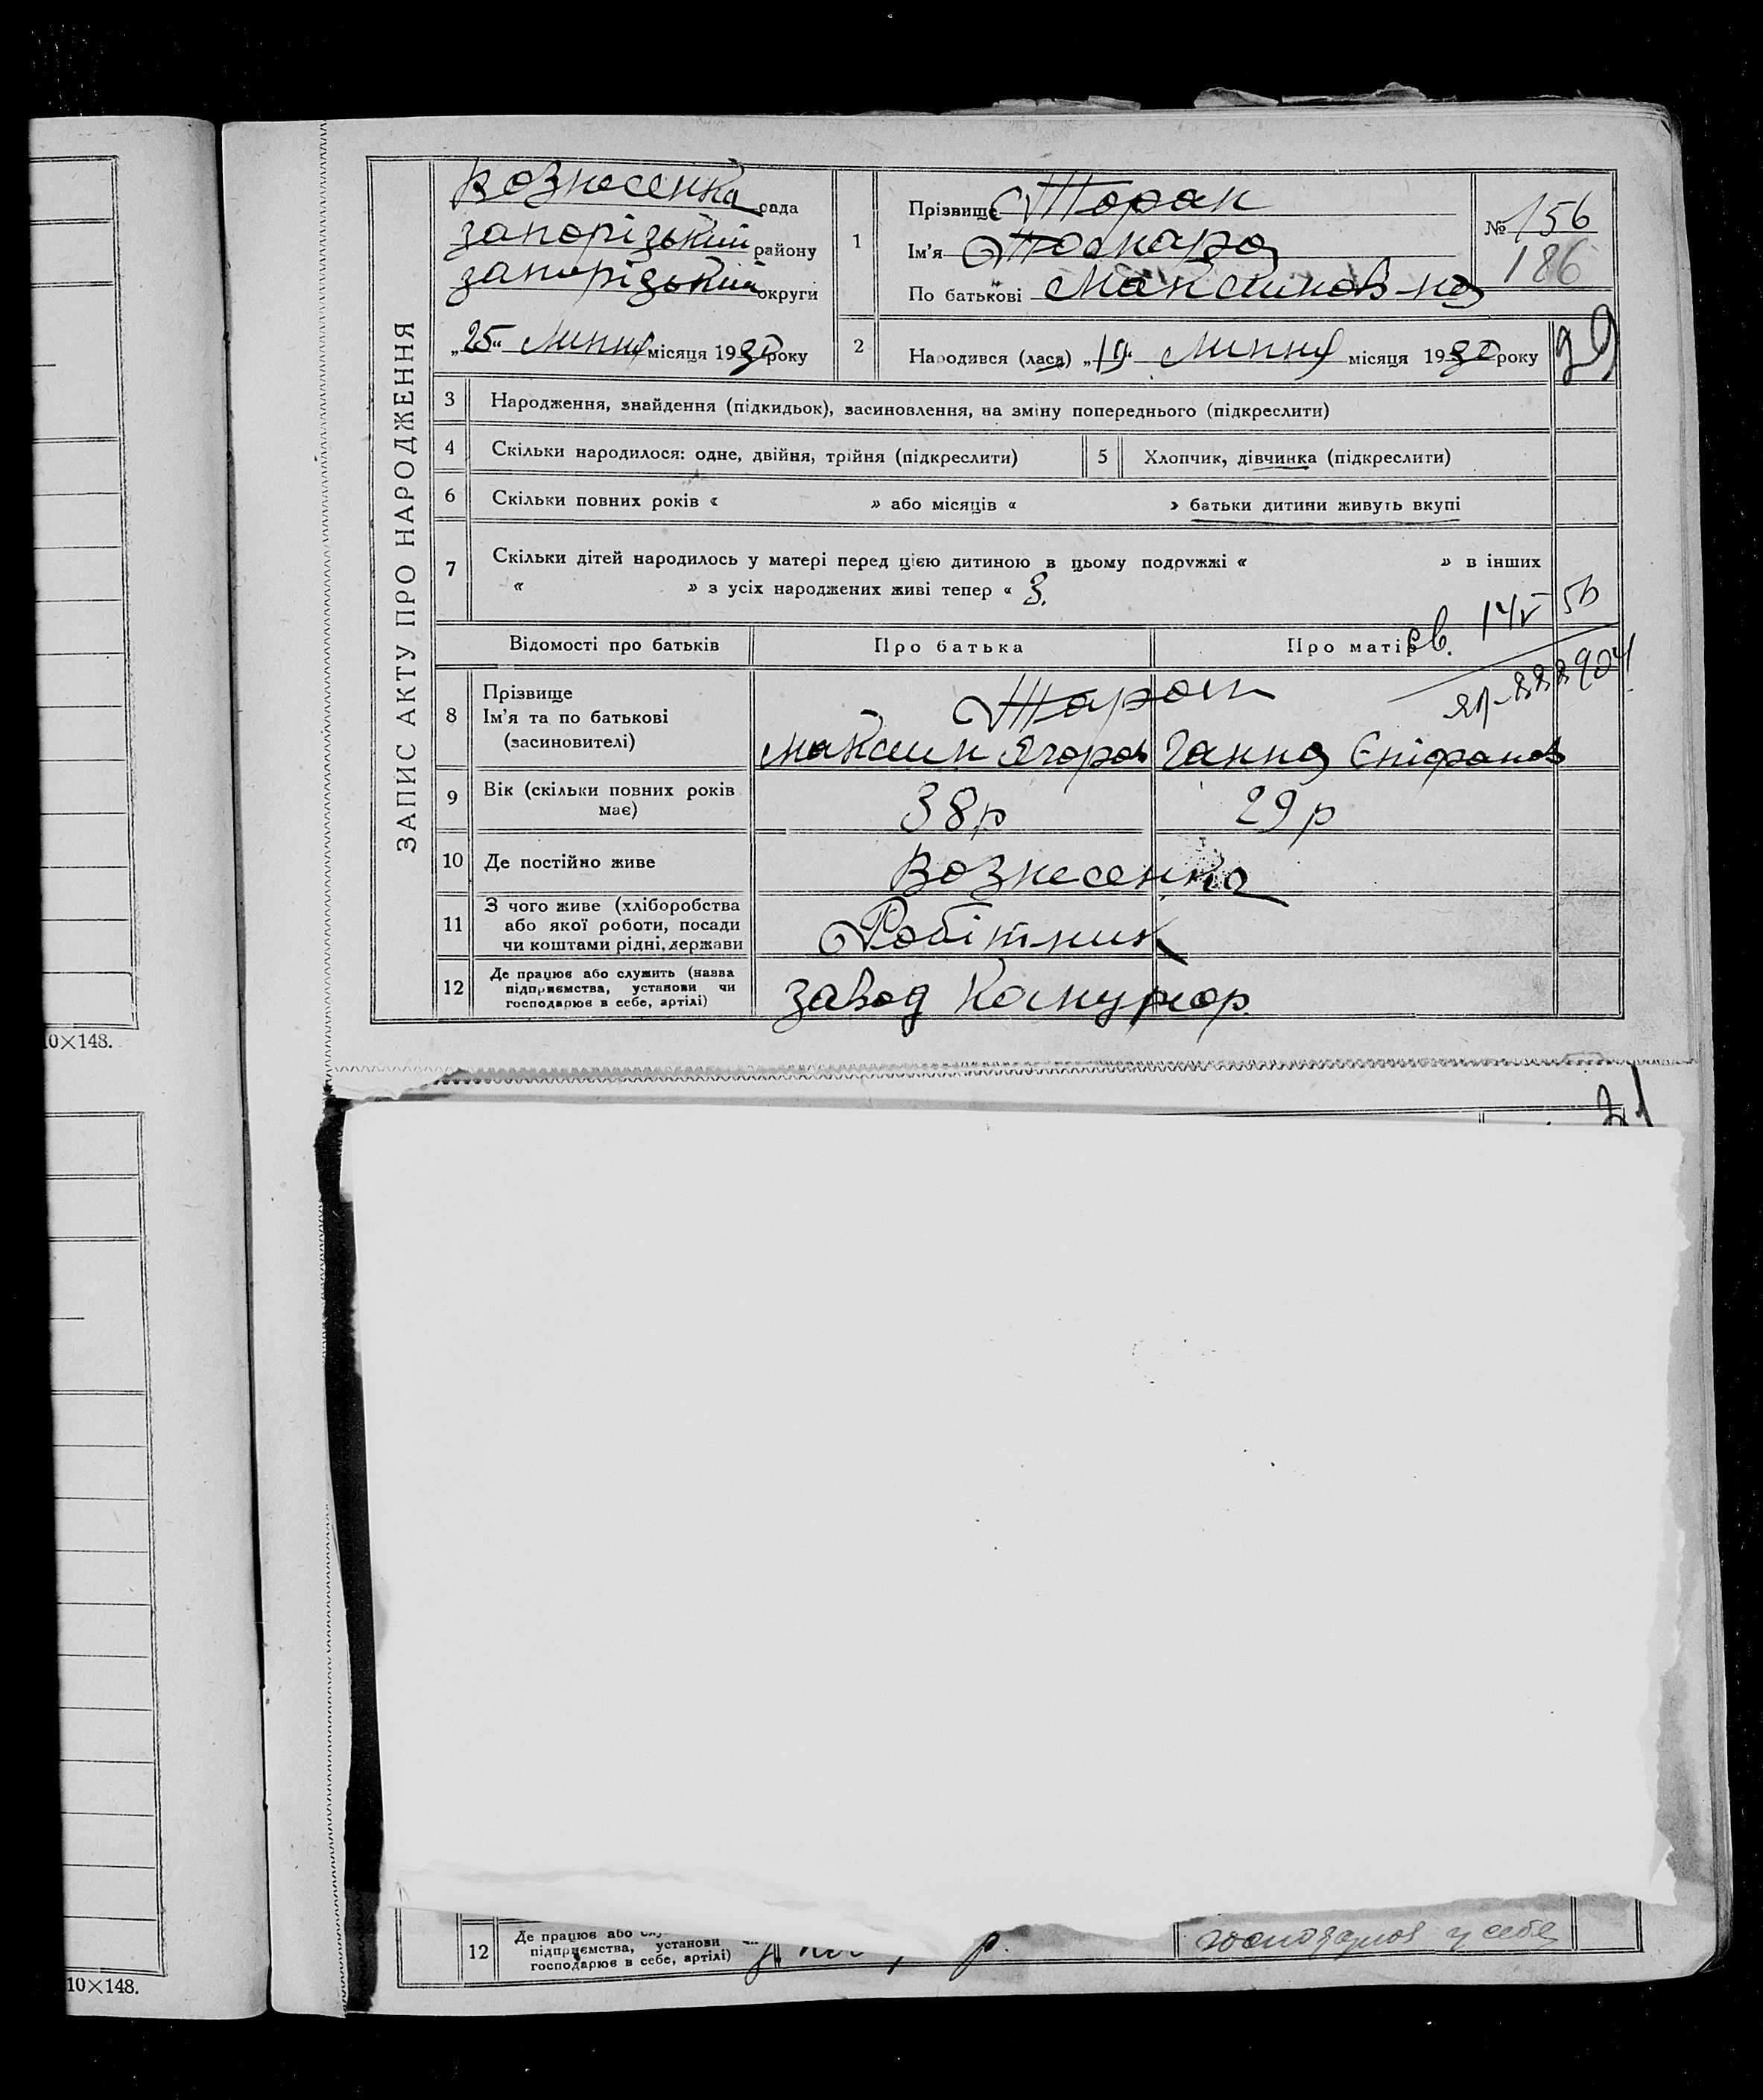 ЗАПИС АКТУ ПРО НАРОДЖЕННЯ
Вознесенка рада
запорізький району
запорізький округи
„25“ Липня місяця 1930 року
1
Прізвище Таран
Ім'я Тамара
По батькові Максимовна
№ 156
186
2
Народився (лася) „19“ Липня місяця 1930 року
29
3 Народження, знайдення (підкидьок), засиновлення, на зміну попереднього (підкреслити)
4 Скільки народилося: одне, двійня, трійня (підкреслити)
5 Хлопчик, дівчинка (підкреслити)
6 Скільки повних років « » або місяців « » батьки дитини живуть вкупі
7 Скільки дітей народилось у матері перед цією дитиною в цьому подружжі « » в інших
« » з усіх народжених живі тепер « 3.
Відомості про батьків
Про батька
Про матір
св.
8 Прізвище
Ім'я та по батькові
(засиновителі)
Таран
Максим Ягоров Ганна Єпіфанов
9 Вік (скільки повних років
має)
38р 29р
10 Де постійно живе Вознесенка
11 З чого живе (хліборобства
або якої роботи, посади
чи коштами рідні, держави
Робітник
12 Де працює або служить (назва
підприємства, установи чи
господарює в себе, артілі)
завод
0×148.
12 Де працює або
підприємства, установи
господарює в себе, артілі)
р.
господарює у себе
10×148.